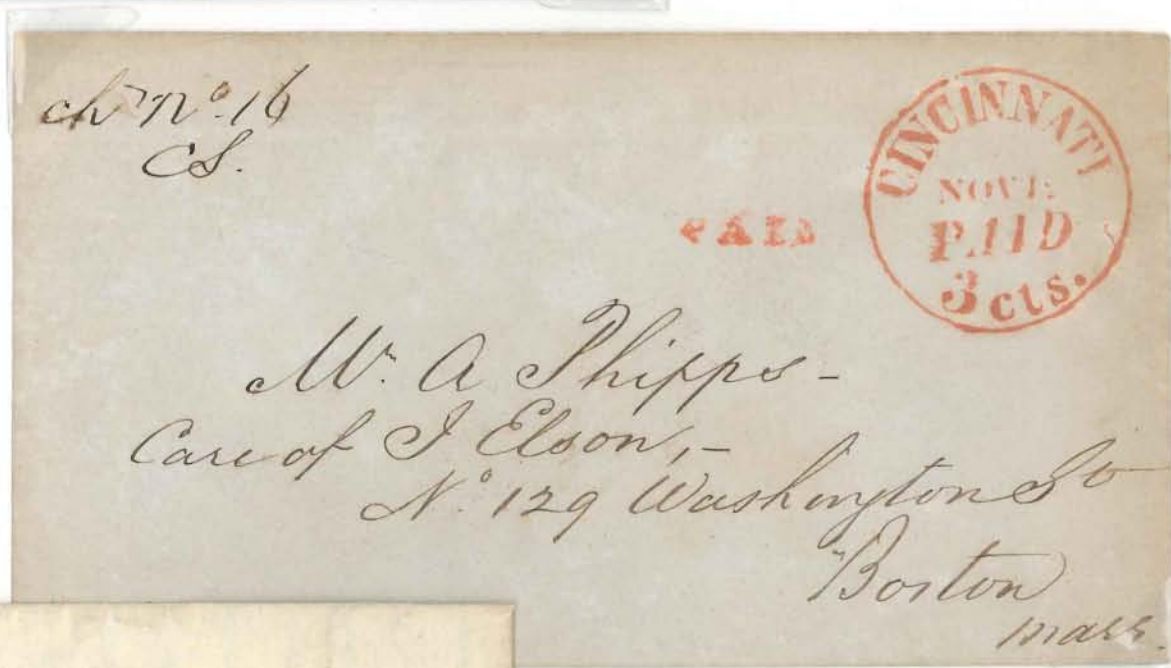 ch No. 16
CS.
PAID
CINCINNATI
NOV
PAID
3 cts.
Mr. A Phipps -
Care of J Elson, -
No. 129 Washington St
Boston
Mass.